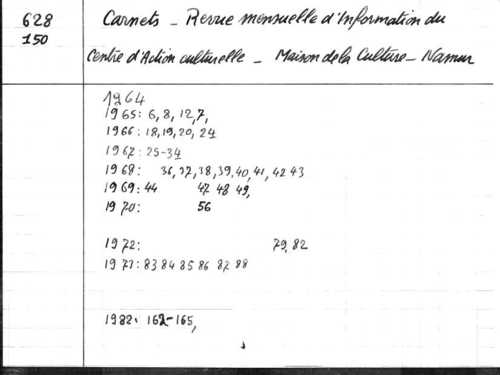 628
150
Carnets - Revue mensuelle d'Information du
Centre d'Action culturelle - Maison de la Culture - Namur
1964
1965: 6, 8, 12, 7,
1966: 18, 19, 20, 24
1967: 25-34
1968: 36, 37, 38, 39, 40, 41, 42 43
1969: 44 47 48 49,
1970: 56
1972: 79, 82
1973: 83 84 85 86 87 88
1982: 162-165,